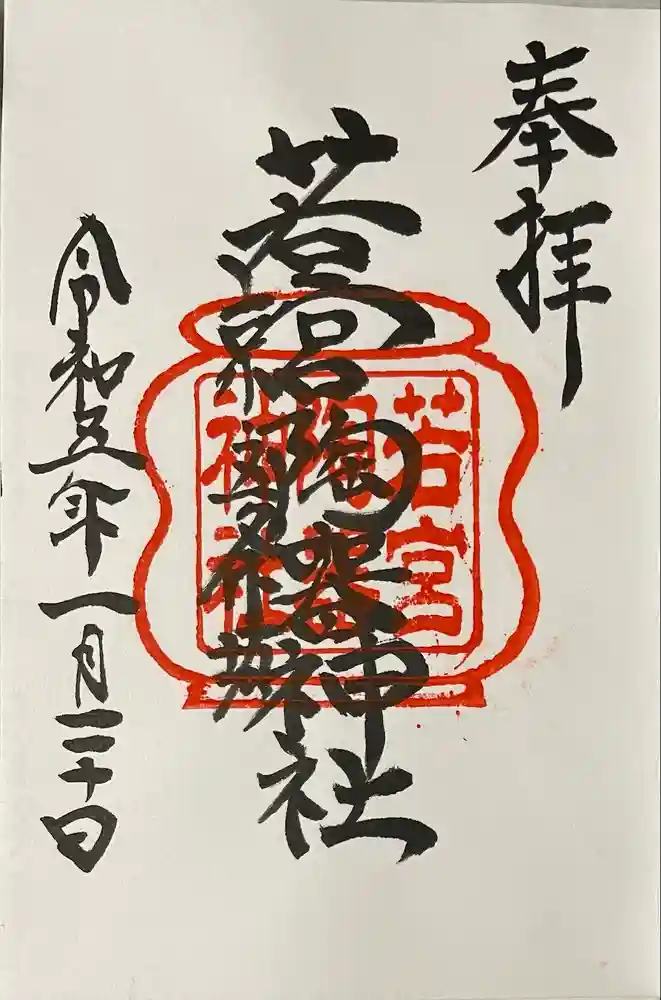 奉拝
若宮陶器神社
令和五年一月二十日
若宮
陶器
神社